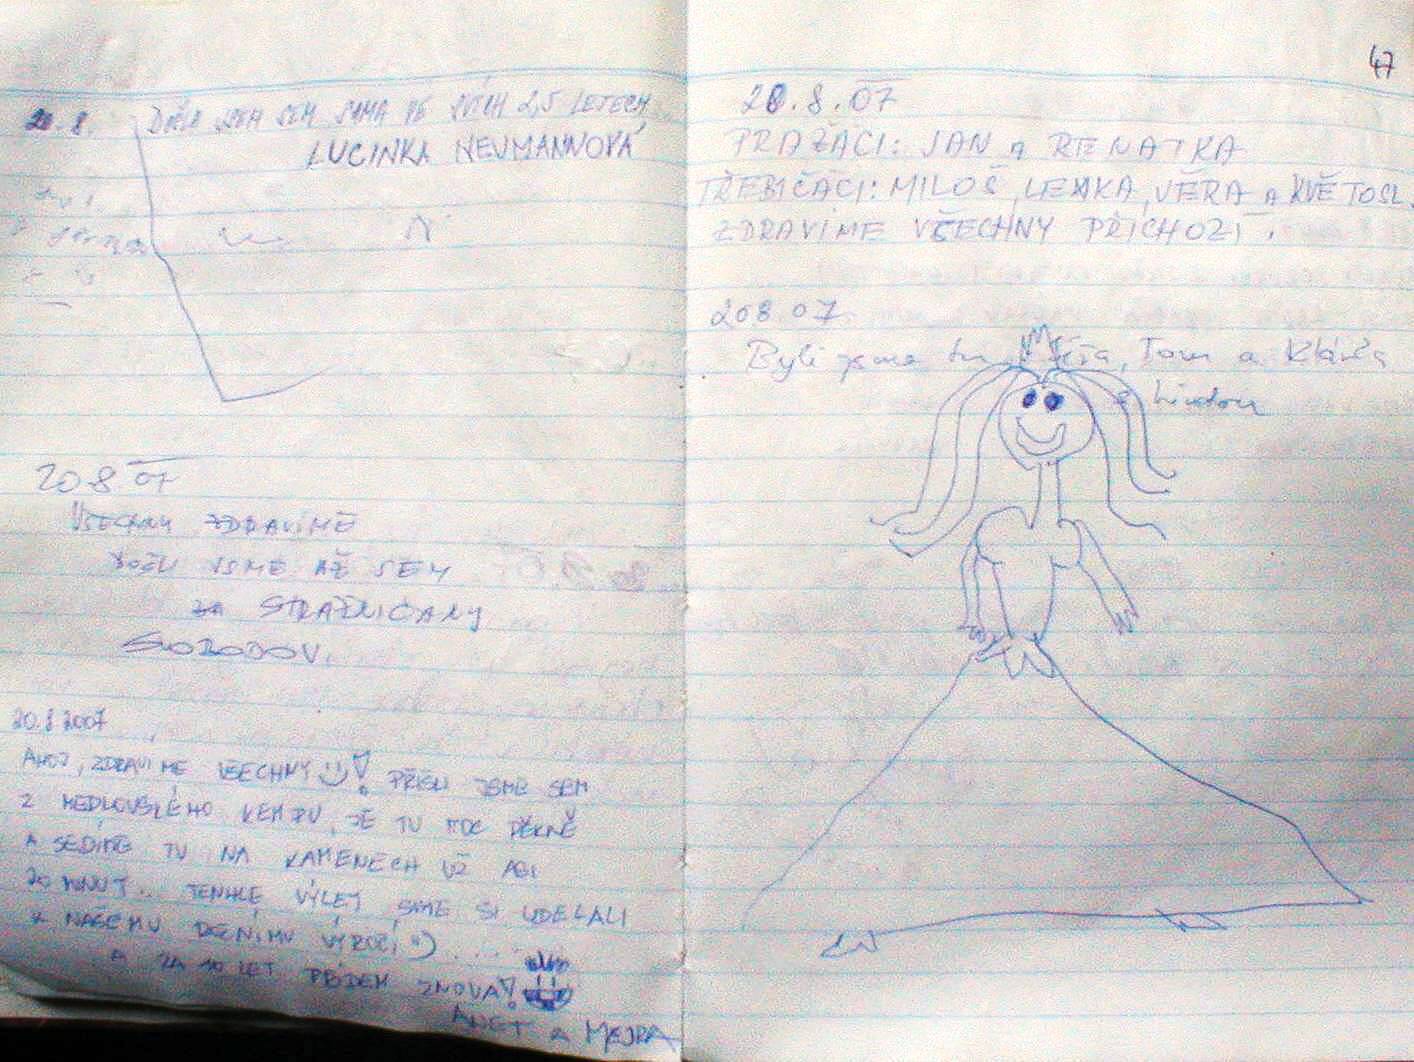 20.8. DOŠLA JSEM SEM SAMA VE SVÝCH 2,5 LETECH
LUCINKA NEUMANNOVÁ
20 8 07
VŠECHNY ZDRAVÍME
DOŠLI JSME AŽ SEM
ZA STRÁŽNIČANY
20.8 2007
AHOJ, ZDRAVÍME VŠECHNY! PŘIŠLI JSME SEM
Z MEDLOVSKÉHO KEMPU, JE TU MOC PĚKNĚ
A SEDÍME TU NA KAMENECH UŽ ASI
20 MINUT.. TENHLE VÝLET SME SI UDELALI
K NAŠEMU ROČNÍMU VÝROČÍ :) ....
A ZA 10 LET PŘIDEM ZNOVA!
ANET A MEJRA
47
20.8.07
PRAŽÁCI: JAN A RENATKA
TŘEBÍČÁCI: MILOŠ, LENKA, VĚRA A KVĚTOSL.
ZDRAVÍME VŠECHNY PŘÍCHOZÍ.
208 07
Byli jsme tu Tom a Klárka